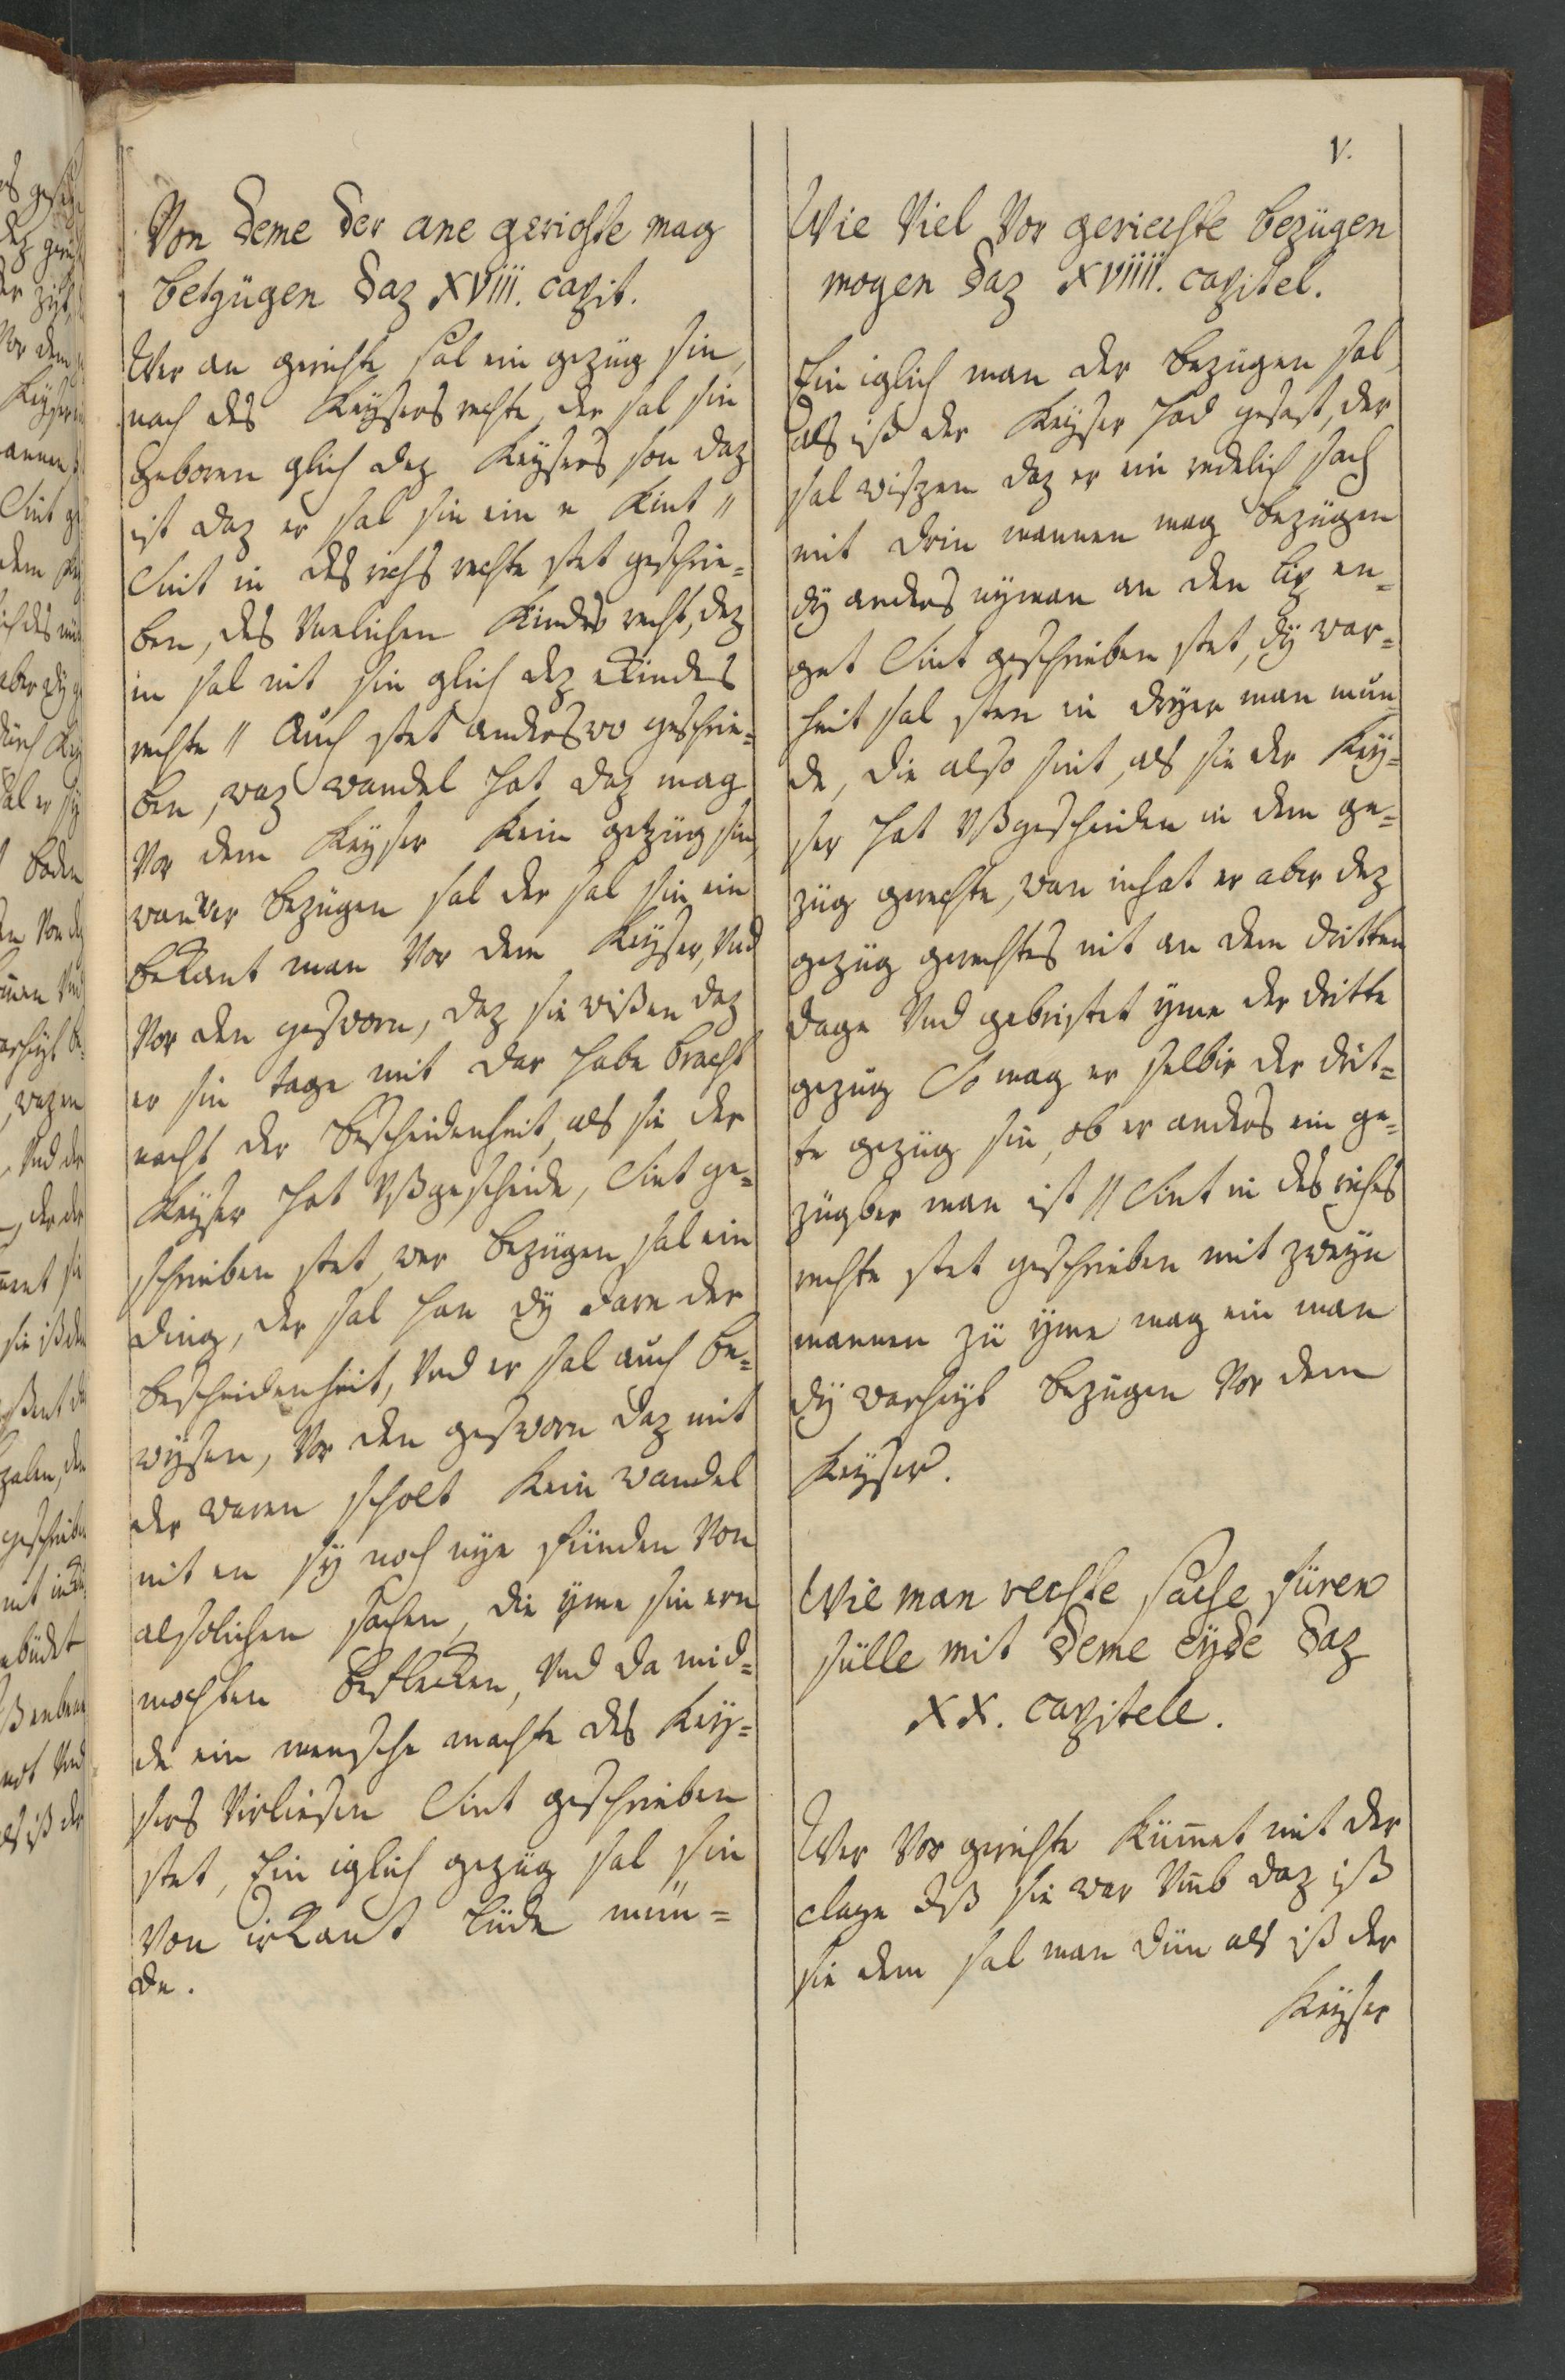 V.
Von deme der ane gerichte mag
betzügen daz XVIII. capit.
Wer an gerichte sal ein gezüg sin,
nach des Keysers rechte, der sal sin
geboren glich dez Keysers son daz
ist daz er sal sin ein e Kint //
Sint in des richs rechte stet geschrie=
ben, des Vnelichen Kindes recht, dez
in sal nit sin glich dez eKindes
rechte // Auch stet anderswo geschrie=
ben, waz wandel hat daz mag
Vor dem Keyser Kein getzüg sin,
wan wer bezügen sal der sal sin ein
beKant man Vor dem Keyser, Vnd
Vor den gesworn, daz sie wißen daz
er sin tage mit dar habe bracht
nacht der bescheidenheit, als sie der
Keyser hat Vßgescheide, Sint ge=
schrieben stet, wer bezügen sal ein
ding, der sal han dy Jare der
bescheidenheit, Vnd er sal auch be=
wysen, Vor den gesworn daz mit
der waren scholt Kein wandel
nit en sy noch nye fünden Von
alsolichen sachen, die yme sin ern
mochten befleken, Vnd da mid=
de ein mensche machte des Key=
sers Virliesen Sint geschrieben
stet, Ein iglich gezüg sal sin
Von irKant lüde mün=
de.
Wie Viel Vor geriechte bezügen
mogen daz XVIIII. capitel.
Ein iglich man der bezügen sal,
als iß der Keyser had gesast, der
sal wißzen daz er ein redelich sach
mit drin mannen mag bezügen
dy anders nyman an den lip en=
get Sint geschrieben stet, dy war=
heit sal sten in dryer man mun
de, die also sint, als sie der Key=
ser hat Vßgescheiden in dem ge=
züg gerechte, wan inhat er aber dez
gezüg gerechtes nit an dem dritten
dage Vnd gebristet yme der dritte
gezüg So mag er selbir der drit=
te gezüg sin, ob er anders ein ge=
zügber man ist // Sint in des riches
rechte stet geschrieben mit zweyn
mannen zü yme mag ein man
dy warheyt bezügen Vor dem
Keyser.
Wie man rechte sache füren
sülle mit deme eyde daz
XX. capitele.
Wer Vor gerichte Kümet mit der
clage dß sie war Vmb daz iß
sie dem sal man dün als iß der
Keyser